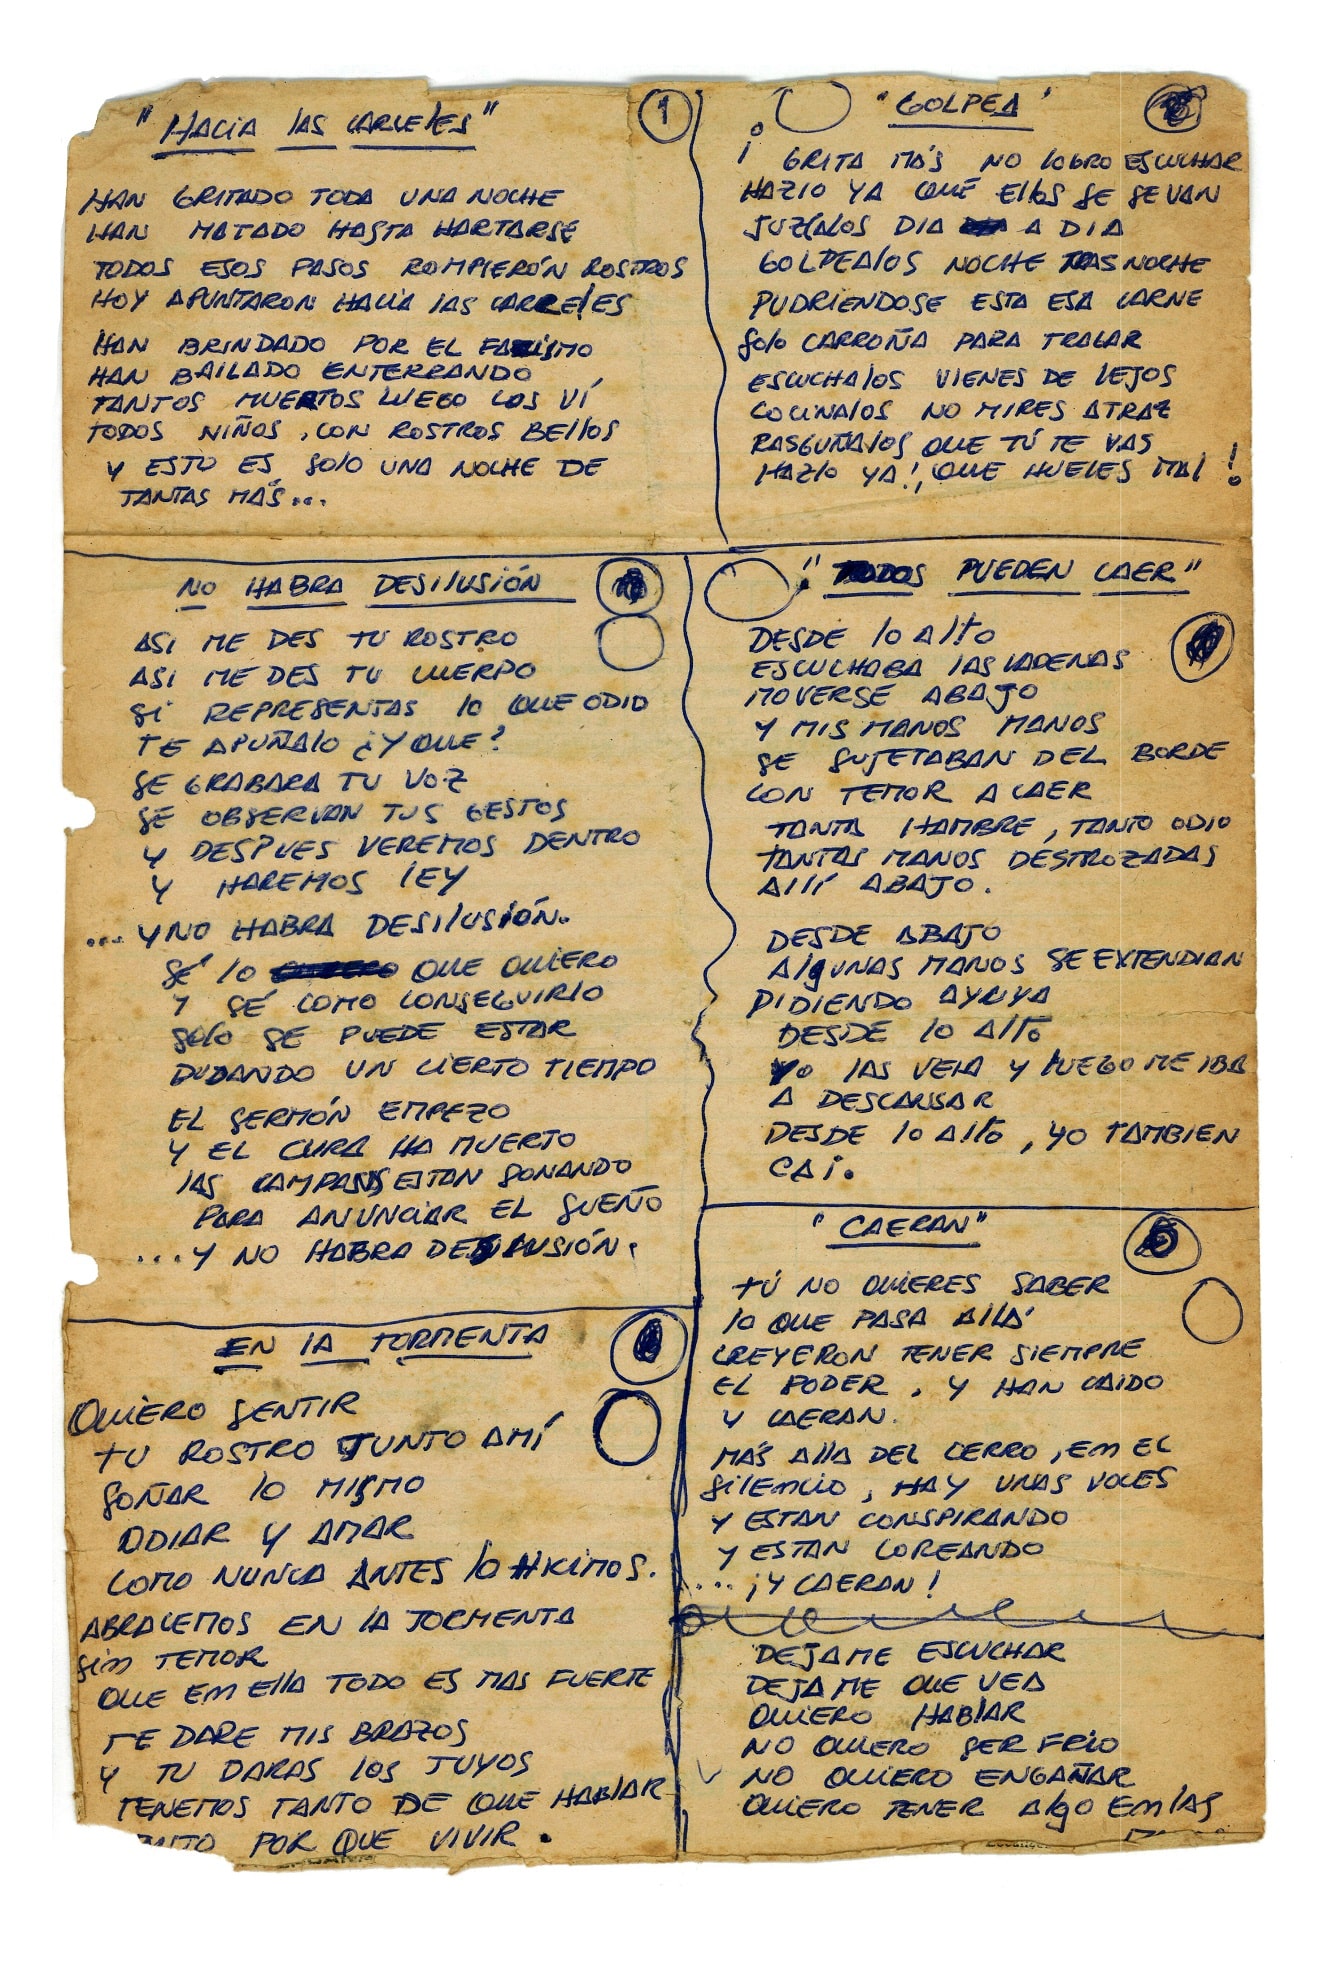 "HACIA LAS CARCELES" 1
HAN GRITADO TODA UNA NOCHE
HAN MATADO HASTA HARTARSE
TODOS ESOS PASOS ROMPIERÓN ROSTROS
HOY APUNTARON HACIA LAS CARCELES
HAN BRINDADO POR EL FACISMO
HAN BAILADO ENTERRANDO
TANTOS MUERTOS LUEGO LOS VÍ
TODOS NIÑOS, CON ROSTROS BELLOS
Y ESTO ES SOLO UNA NOCHE DE
TANTAS MÁS...
"GOLPEA"
¡ GRITA MÁS NO LOGRO ESCUCHAR
HAZLO YA QUÉ ELLOS SE SE VAN
JUZGALOS DIA A DIA
GOLPEALOS NOCHE TRAS NOCHE
PUDRIENDOSE ESTA ESA CARNE
SOLO CARROÑA PARA TRAGAR
ESCUCHALOS VIENES DE LEJOS
COCINALOS NO MIRES ATRAZ
RASGUÑALOS QUE TÚ TE VAS
HAZLO YA!, QUE HUELES MAL !
NO HABRA DESILUSIÓN
ASI ME DES TU ROSTRO
ASI ME DES TU CUERPO
SI REPRESENTAS LO QUE ODIO
TE APUÑALO ¿Y QUE?
SE GRABARA TU VOZ
SE OBSERVAN TUS GESTOS
Y DESPUES VEREMOS DENTRO
Y HAREMOS LEY
... Y NO HABRA DESILUSIÓN.
SÉ LO QUE QUIERO
Y SÉ COMO CONSEGUIRLO
SOLO SE PUEDE ESTAR
DUDANDO UN CIERTO TIEMPO
EL SERMÓN EMPEZO
Y EL CURA HA MUERTO
LAS CAMPANAS ESTAN SONANDO
PARA ANUNCIAR EL SUEÑO
... Y NO HABRA DESILUSIÓN.
"TODOS PUEDEN CAER"
DESDE LO ALTO
ESCUCHABA LAS CADENAS
MOVERSE ABAJO
Y MIS MANOS MANOS
SE SUJETABAN DEL BORDE
CON TEMOR A CAER
TANTA HAMBRE, TANTO ODIO
TANTAS MANOS DESTROZADAS
ALLÍ ABAJO.
DESDE ABAJO
ALGUNAS MANOS SE EXTENDIAN
PIDIENDO AYUYA
DESDE LO ALTO
YO LAS VEIA Y LUEGO ME IBA
A DESCANSAR
DESDE LO ALTO, YO TAMBIEN
CAI.
EN LA TORMENTA
QUIERO SENTIR
TU ROSTRO JUNTO A MÍ
SOÑAR LO MISMO
ODIAR Y AMAR
COMO NUNCA ANTES LO HICIMOS.
ABRACEMOS EN LA TORMENTA
SIN TEMOR
QUE EN ELLA TODO ES MAS FUERTE
TE DARE MIS BRAZOS
Y TU DARAS LOS TUYOS
TENEMOS TANTO DE QUE HABLAR
TANTO POR QUE VIVIR.
"CAERAN" 5
TÚ NO QUIERES SABER
LO QUE PASA ALLÁ
CREYERON TENER SIEMPRE
EL PODER, Y HAN CAIDO
Y CAERAN.
MÁS ALLA DEL CERRO, EN EL
SILENCIO, HAY UNAS VOCES
Y ESTAN CONSPIRANDO
Y ESTAN COREANDO
... ¡Y CAERAN!
DEJAME ESCUCHAR
DEJAME QUE VEA
QUIERO HABLAR
NO QUIERO SER FRIO
NO QUIERO ENGAÑAR
QUIERO TENER ALGO EN LAS